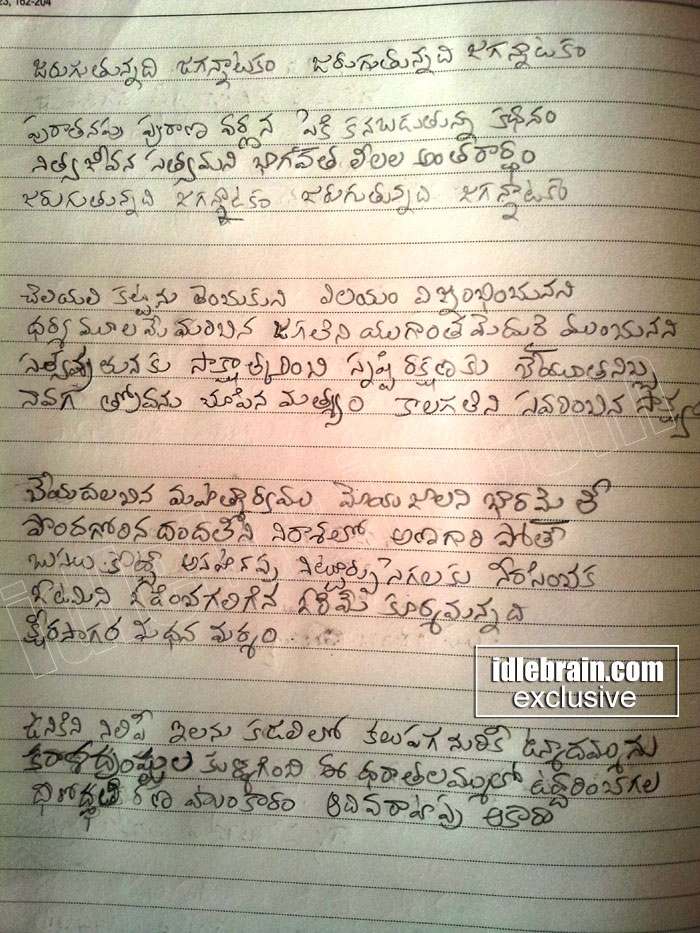 23, 162-204
జరుగుతున్నది జగన్నాటకం జరుగుతున్నది జగన్నాటకం
పురాతనపు పురాణ వర్ణన పైకి కనబడుతున్నా కథనం
నిత్య జీవన సత్యమని భాగవత లీలల అంతరార్థం
జరుగుతున్నది జగన్నాటకం జరుగుతున్నది జగన్నాటకం
చెలియలి కట్టను తెంచుకుని విలయం విజృంభించునని
ధర్మ మూలమే మరచిన జగతిని యుగాంత మెదురై ముంచునని
సత్యవ్రతునకు సాక్షాత్కరించి సృష్టి రక్షణకు చేయూతనిచ్చి
నావగ త్రోవను చూపిన మత్స్యం కాలగతిని సవరించిన సాక్ష్యం
చేయదలచిన మహత్కార్యము మోయజాలని భారమైతే
పొందగోరినదందలేని నిరాశలో అణగారిపోతే
బుసలు కొట్టే అసహనపు నిట్టూర్పు సెగలకు నీరసించక
ఓటమిని ఓడించగలిగిన ఓరిమే కూర్మమన్నది
క్షీరసాగర మథన మర్మం
ఉనికిని నిలిపే ఇలను కడలిలో కలుపగ నురికే ఉన్మాదమ్మును
కరాళ దంష్ట్రల కుళ్ళగించి ఈ ధరాతలమ్మును ఉద్ధరించగల
ధీరోద్ధతి రణ హుంకారం ఆదివరాహపు ఆకారం
idlebrain.com
exclusive